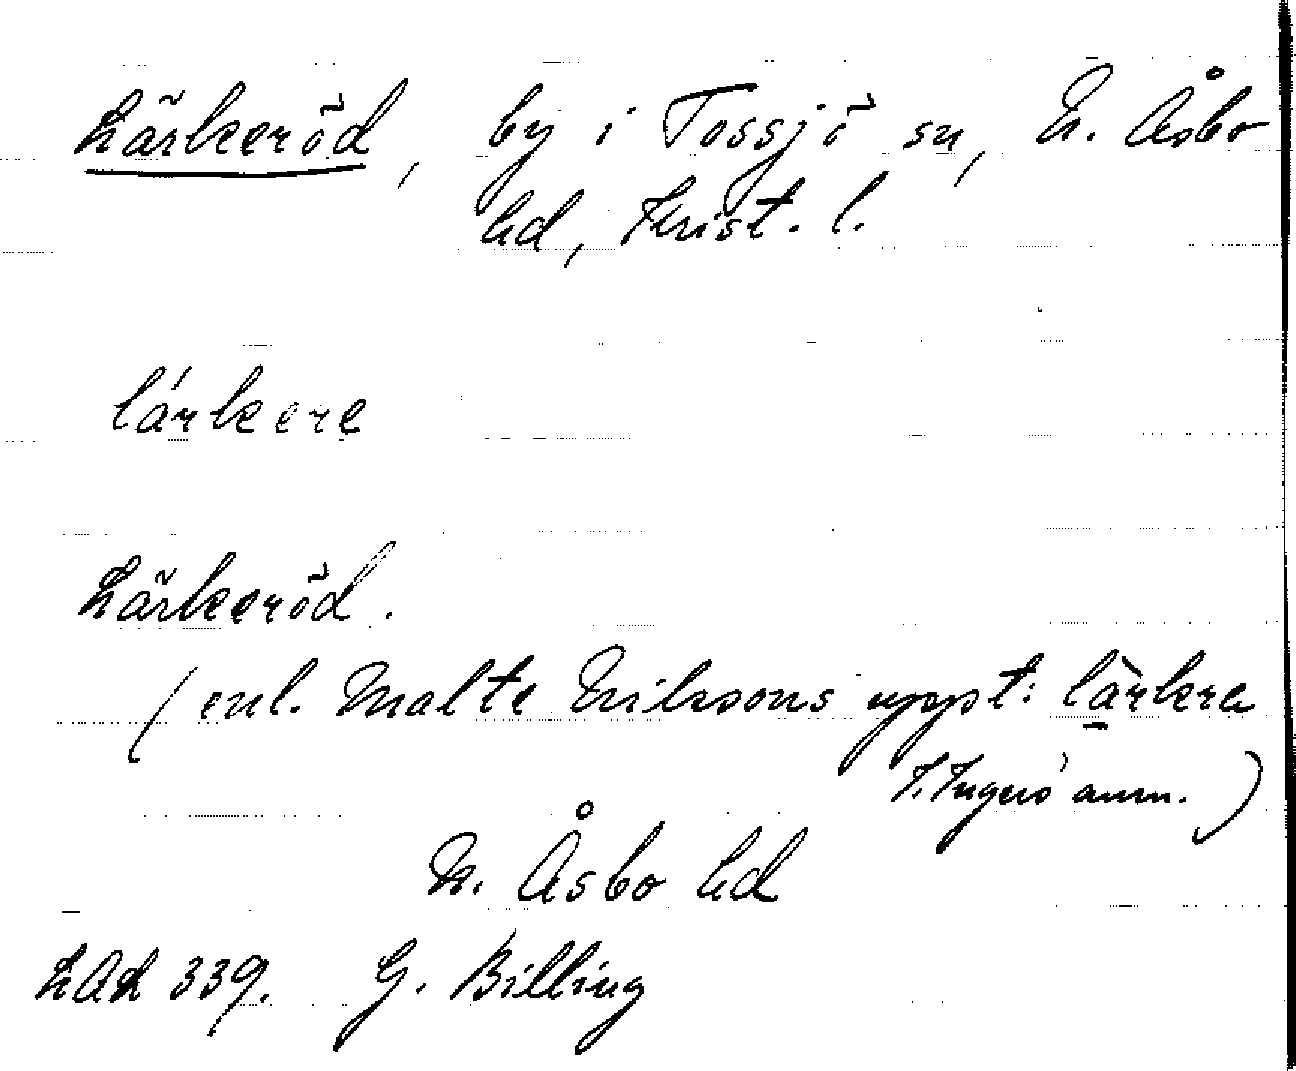 Lärkeröd, by i Tossjö sn, N. Åsbo
hd, Krist. l.
lárkere
Lärkeröd.
(enl. Malte Erikssons uppt: làrkere
F. Ingers' anm.)
N. Åsbo hd
LAL 339. G. Billing